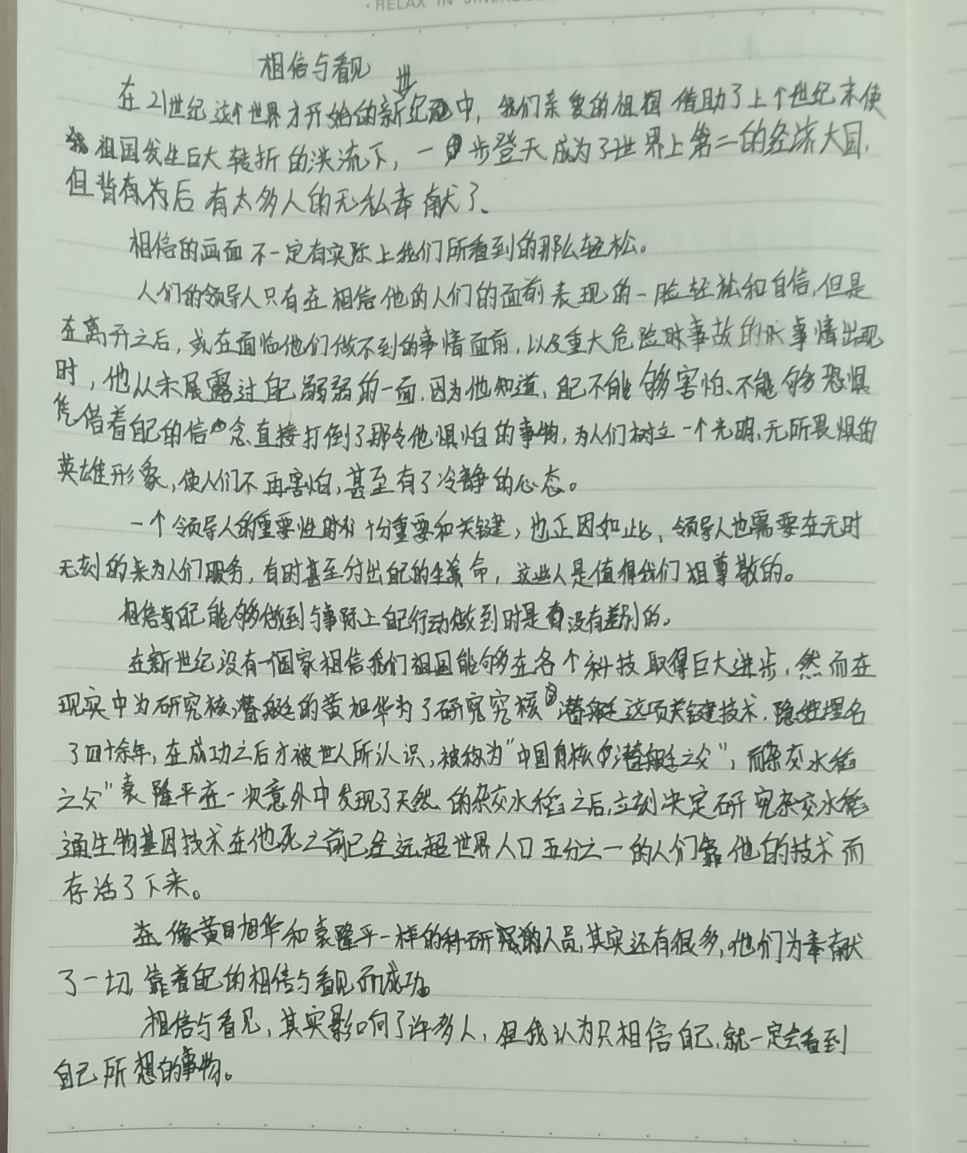 RELAX IN
相信与看见
在21世纪这个世界才开始的新世纪中，我们亲爱的祖国借助了上个世纪末使
祖国发生巨大转折的洪流下，一步登天成为了世界上第二的经济大国，
但背后有太多人的无私奉献了、
相信的画面不一定有实际上我们所看到的那么轻松。
人们的领导人只有在相信他的人们的面前表现的一脸轻松和自信，但是
在离开之后，或在面临他们做不到的事情面前，以及重大危险时事故的事情出现
时，他从未展露过自己弱弱的一面，因为他知道，自己不能够害怕、不能够恐惧
凭借着自己的信念、直接打倒了那令他惧怕的事物，为人们树立一个光明、无所畏惧的
英雄形象，使人们不再害怕，甚至有了冷静的心态。
一个领导人的重要性十分重要和关键，也正因如此、领导人也需要在无时
无刻的来为人们服务，有时甚至付出自己的生命，这些人是值得我们尊敬的。
相信自己能够做到与事际上自己行动做到时是没有差别的。
在新世纪没有一国家相信我们祖国能够在各个科技取得巨大进步，然而在
现实中为研究核潜艇的黄旭华为了研究核潜艇这项关键技术，隐姓埋名
了四十余年，在成功之后才被世人所认识，被称为“中国核潜艇之父”，而杂交水稻
之父”袁隆平在一次意外中发现了天然的杂交水稻之后，立刻决定研究杂交水稻
通生物基因技术在他死之前已经远超世界人口五分之一的人们靠他的技术而
存活了下来。
在像黄旭华和袁隆平一样的科研人员，其实还有很多，他们为奉献
了一切，靠着自己的相信与看见而成功。
相信与看见，其实影响了许多人，但我认为只相信自己，就一定会看到
自己所想的事物。